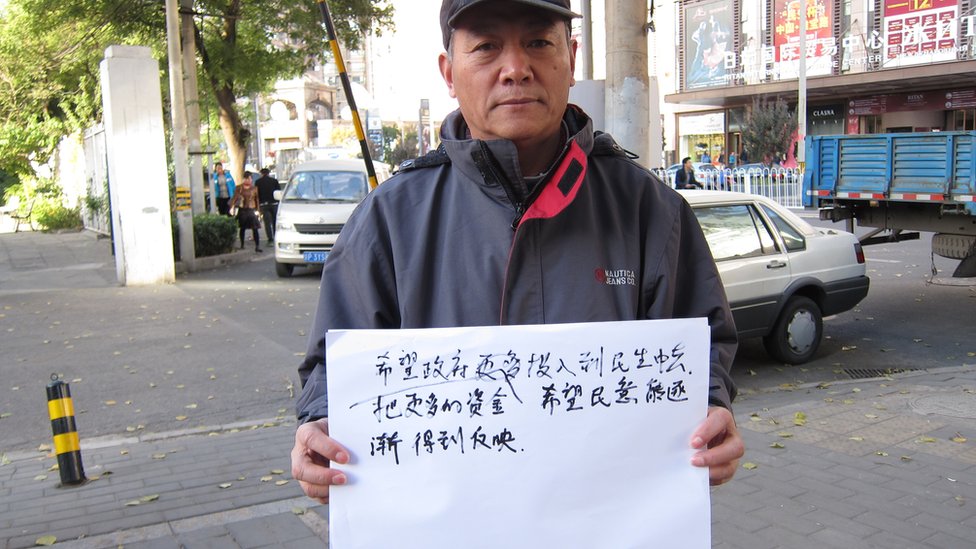 希望政府更多投入到民生中去.
把更多的资金 希望民意能逐
渐得到反映.
NAUTICA
JEANS CO.
CLASNA
RITAN